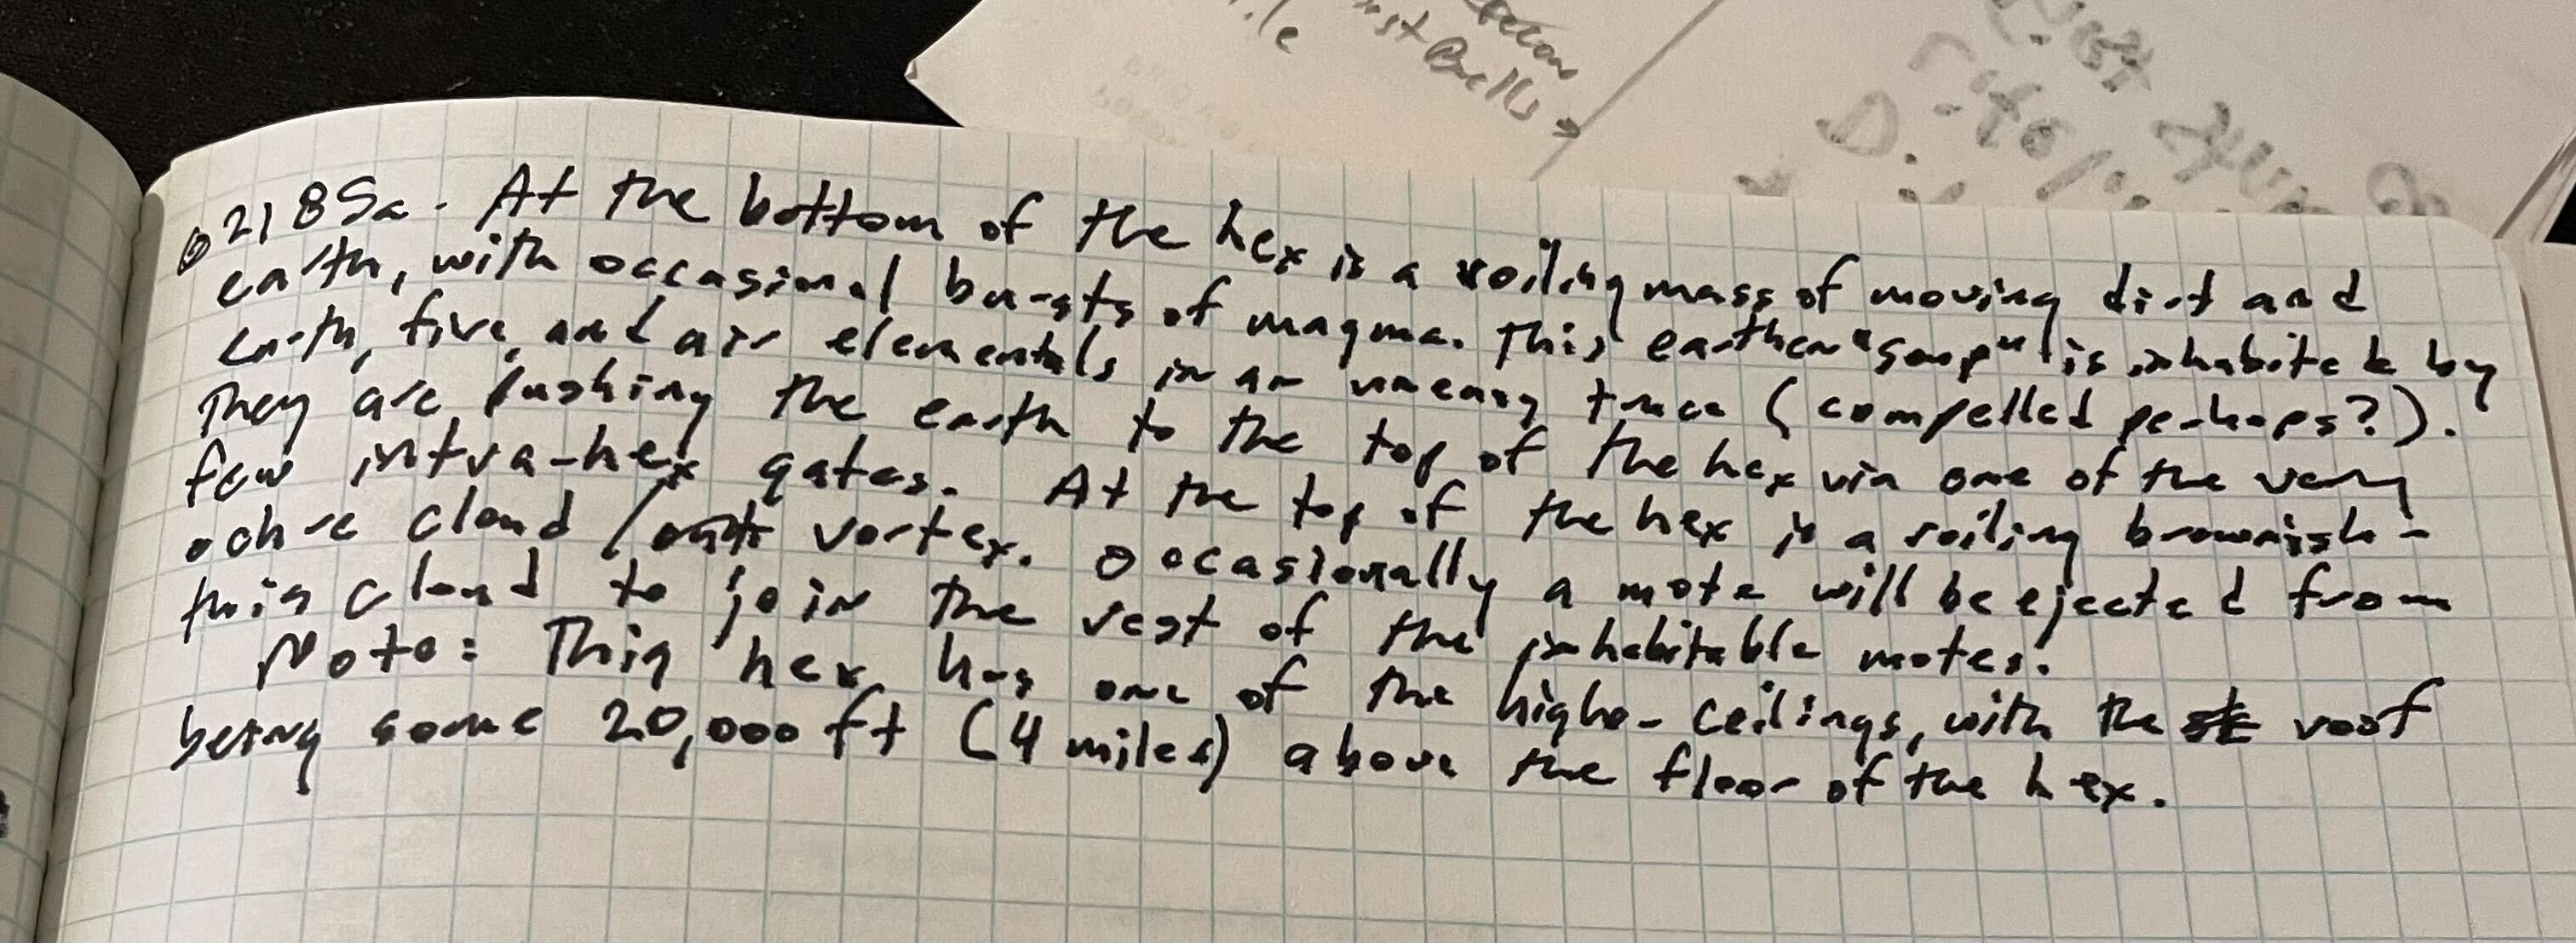 ile
st Balls →
2185a. At the bottom of the hex is a roiling mass of moving dirt and
earth, with occasional bursts of magma. This earthen "soup" is inhabited by
earth, fire, and air elementals in an uneasy truce (compelled perhaps?).
They are pushing the earth to the top of the hex via one of the very
few intra-hex gates. At the top of the hex is a roiling brownish-
ochre cloud / vortex. Occasionally a mote will be ejected from
this cloud to join the rest of the inhabitable motes.
Note: This hex has one of the higher ceilings, with the roof
being some 20,000 ft (4 miles) above the floor of the hex.